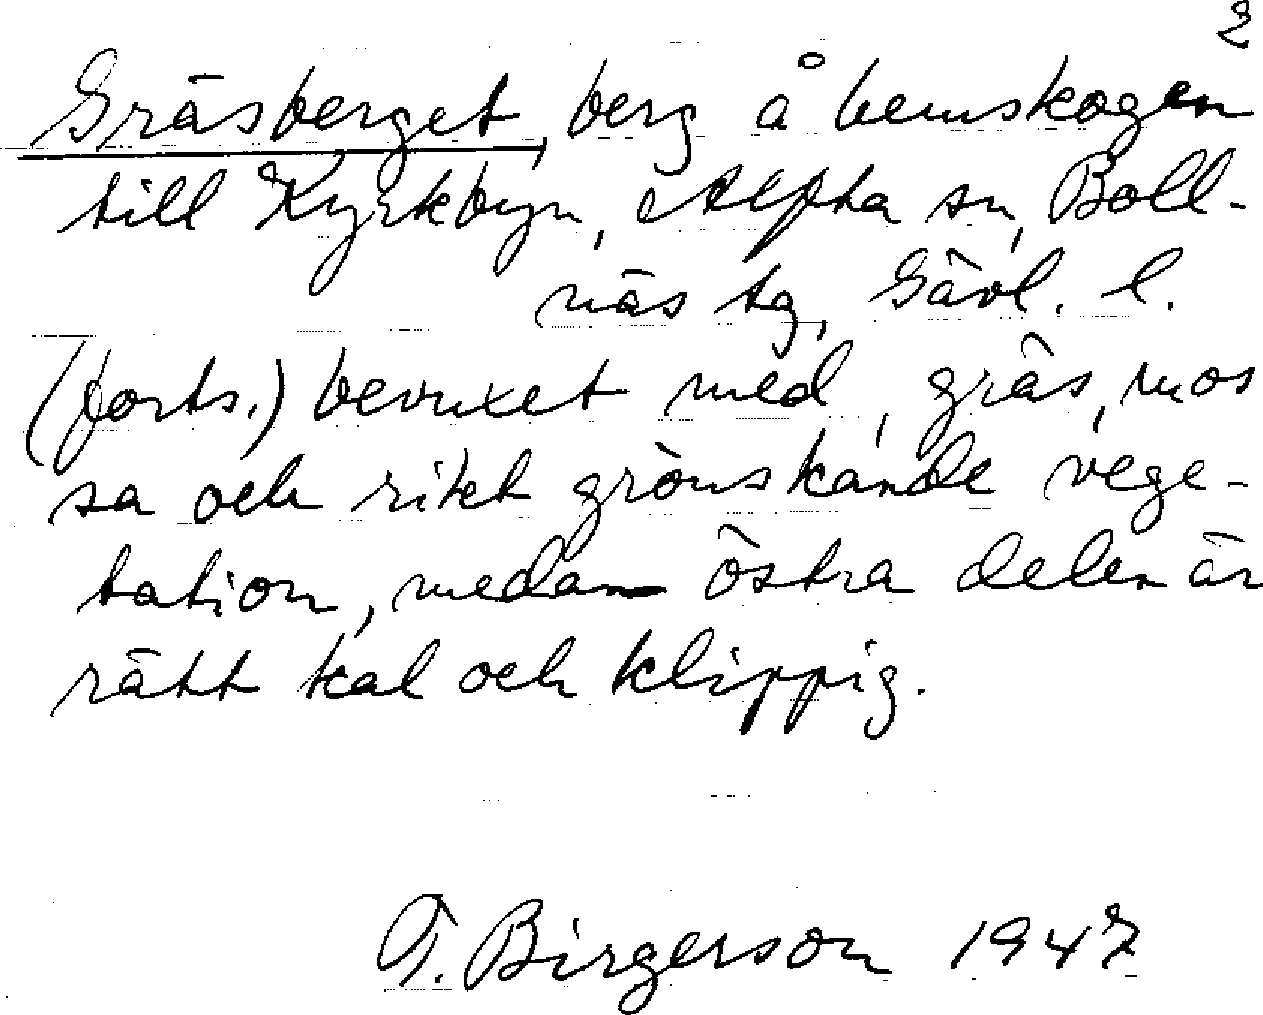 2
Gräsberget, berg å hemskogen
till Kyrkbyn, Alfta sn, Boll-
näs tg, Gävl. l.
(forts.) bevuxet med, gräs, mos
sa och rikt grönskande vege-
tation, medan östra delen är
rätt kal och klippig.
T. Birgerson 1947